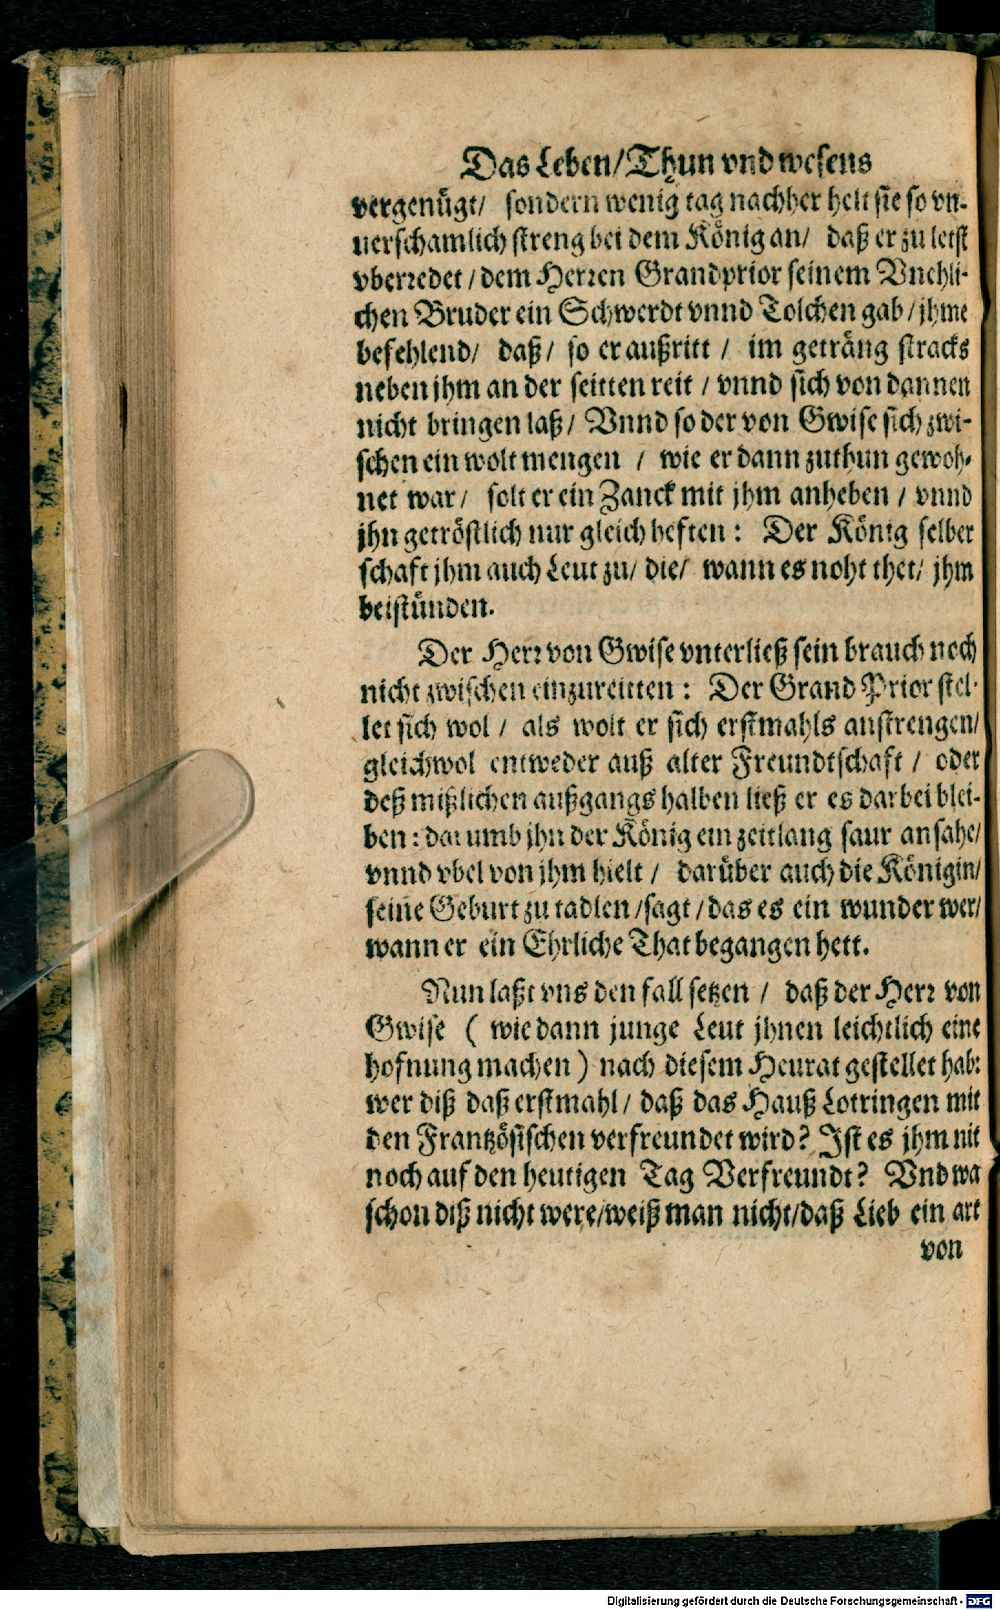 Das Leben/Thun vnd wesens
vergenügt/ sondern wenig tag nachher helt sie so vn-
uerschamlich streng bei dem König an/ daß er zu letst
vberredet/dem Herren Grandprior seinem Vnehli-
chen Bruder ein Schwerdt vnnd Tolchen gab/jhme
befehlend/ daß/ so er außritt/ im geträng stracks
neben jhm an der seitten reit/vnnd sich von dannen
nicht bringen laß/ Vnnd so der von Gwise sich zwi-
schen ein wolt mengen / wie er dann zuthun gewoh-
net war/ solt er ein Zanck mit jhm anheben/vnnd
jhn getröstlich nur gleich heften: Der König selber
schaft jhm auch Leut zu/die/ wann es noht thet/ jhm
beistünden.
Der Herr von Gwise vnterließ sein brauch noch
nicht zwischen einzureitten: Der Grand Prior stel-
let sich wol/ als wolt er sich erstmahls anstrengen/
gleichwol entweder auß alter Freundtschaft/ oder
deß mißlichen außgangs halben ließ er es darbei blei-
ben: darumb jhn der König ein zeitlang saur ansahe/
vnnd vbel von jhm hielt/ darüber auch die Königin/
seine Geburt zu tadlen/sagt/das es ein wunder wer/
wann er ein Ehrliche That begangen hett.
Nun laßt vns den fall setzen / daß der Herr von
Gwise ( wie dann junge Leut jhnen leichtlich eine
hofnung machen) nach diesem Heurat gestellet hab:
wer diß daß erstmahl/ daß das Hauß Lotringen mit
den Frantzösischen verfreundet wird? Ist es jhm nit
noch auf den heutigen Tag Verfreundt? Vnd wa
schon diß nicht were/weiß man nicht/daß Lieb ein art
von
Digitalisierung gefördert durch die Deutsche Forschungsgemeinschaft - DFG